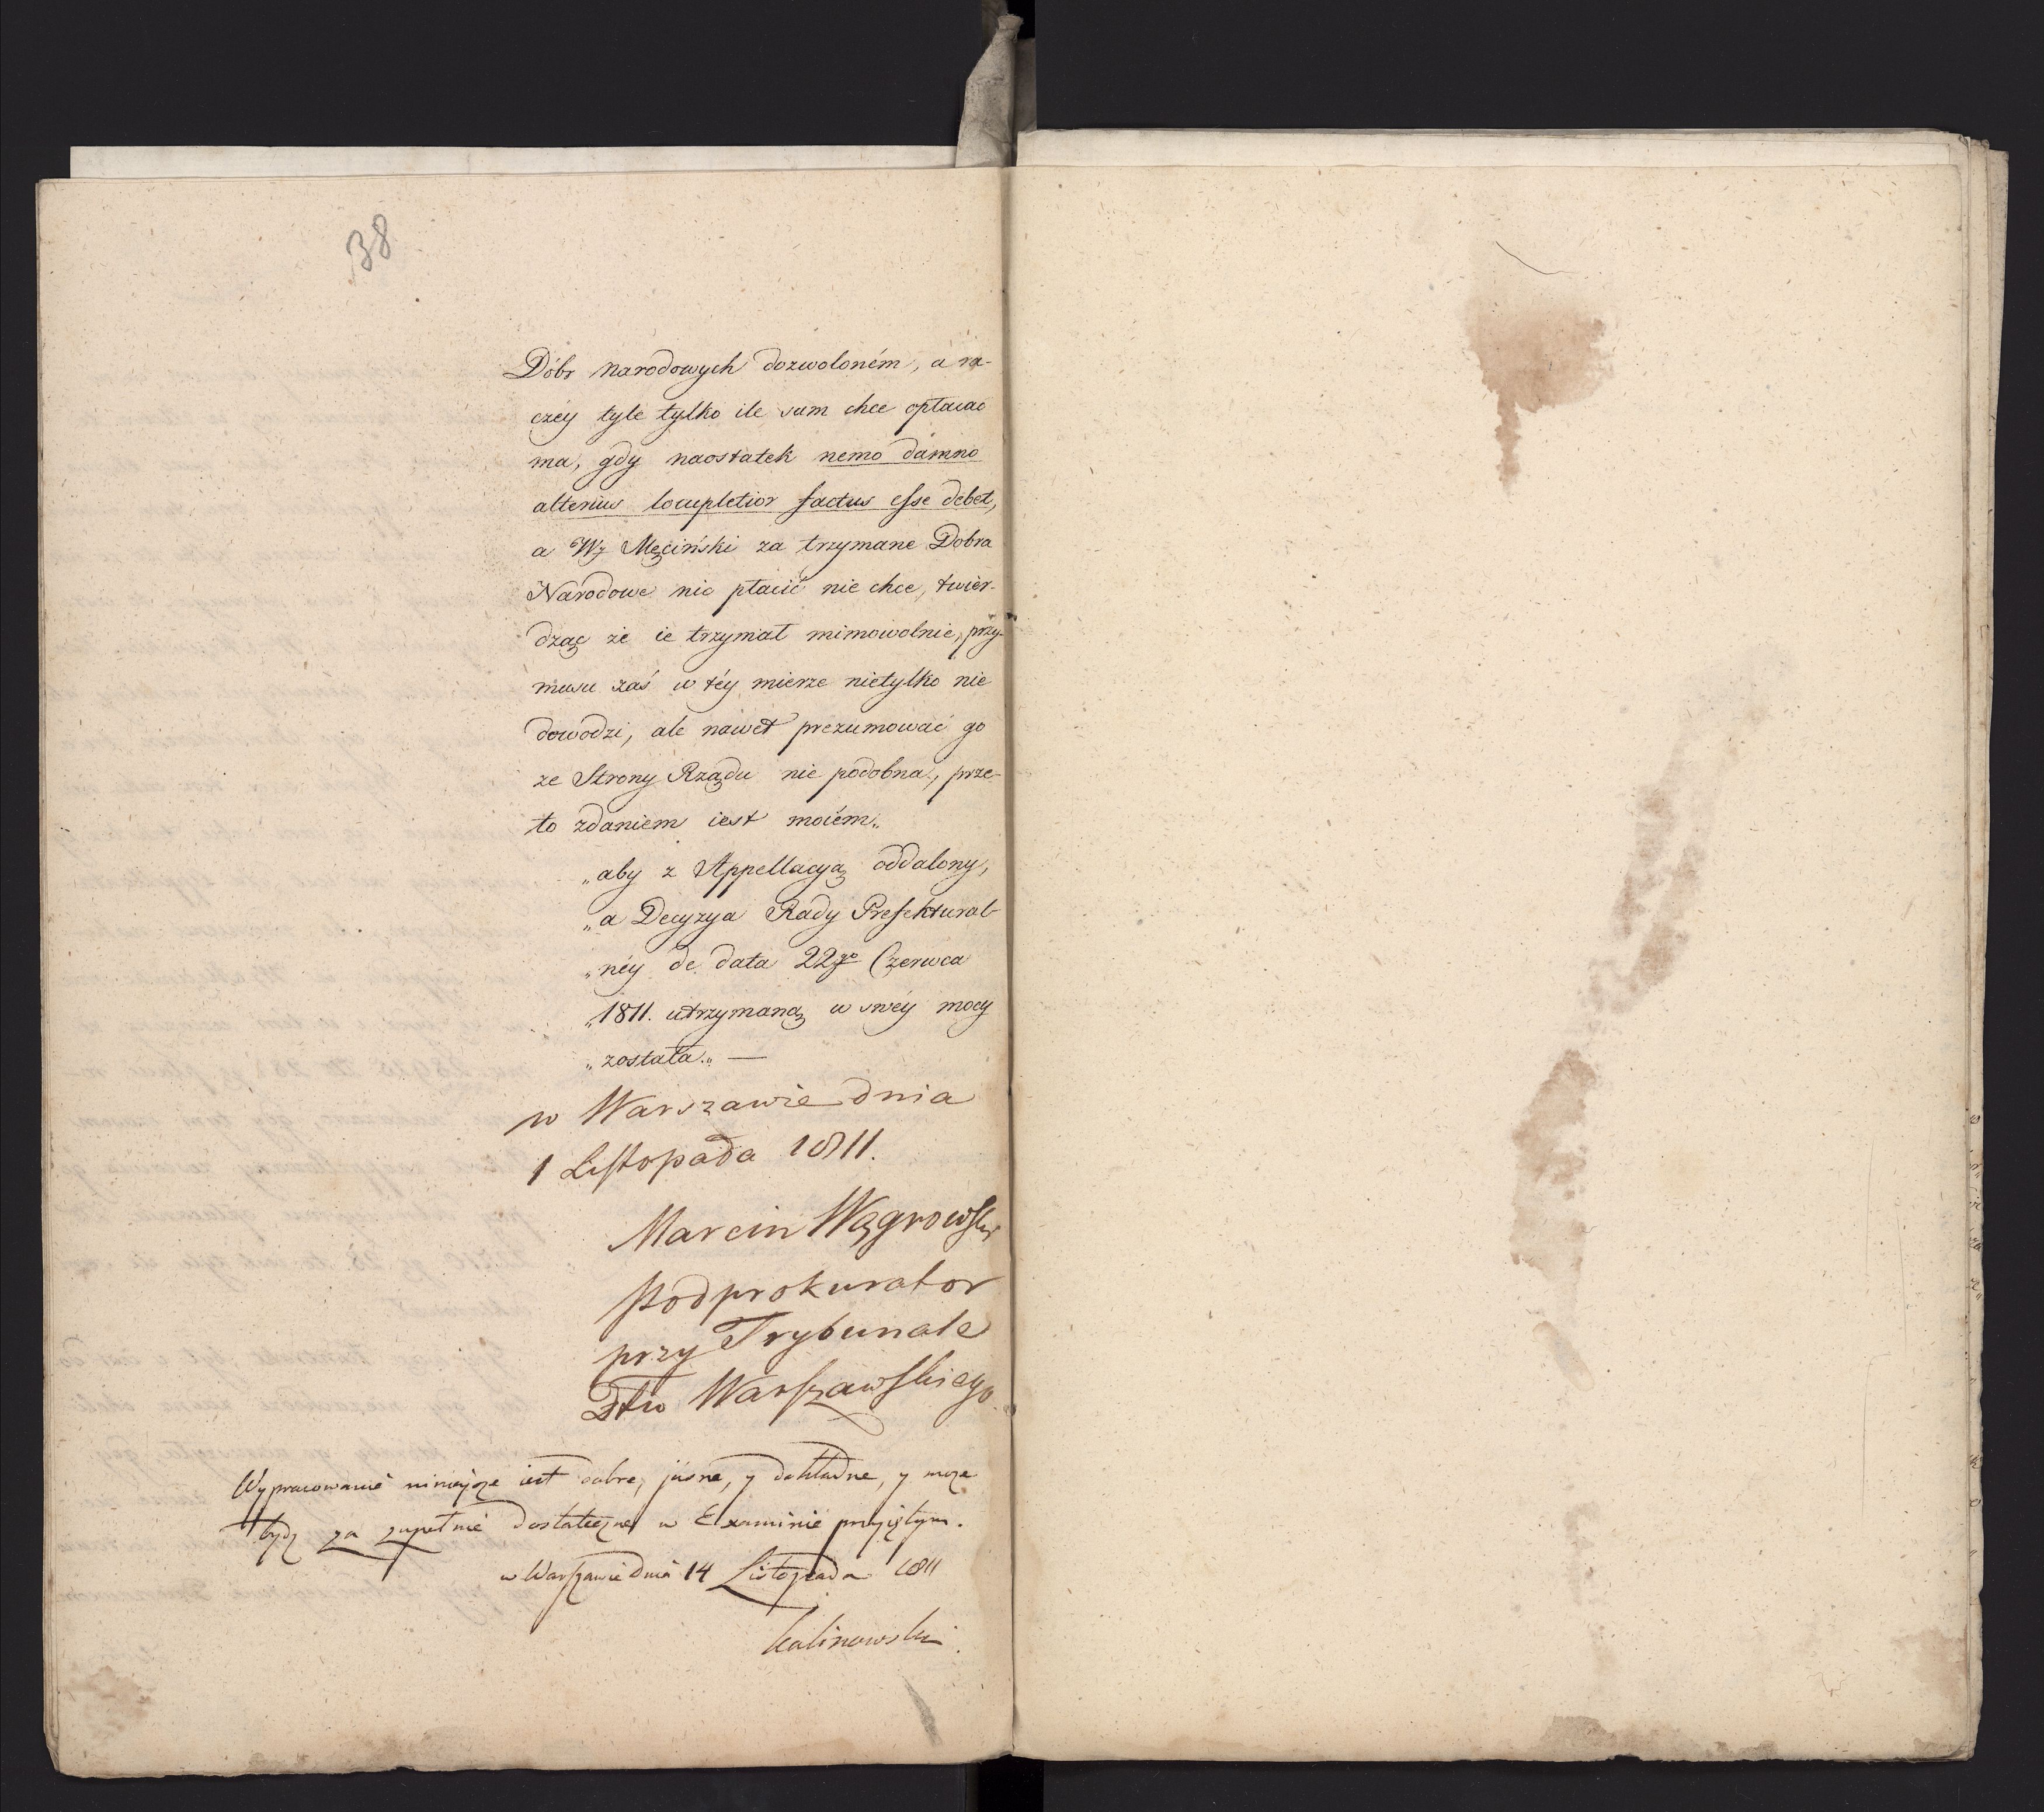 38
Dóbr Narodowych dozwoloném, a ra-
czéy tyle tylko ile sam chce opłacać
ma, gdy naostatek nemo damno
alterius locupletior factus esse debet,
a Wy Męciński za trzymane Dobra
Narodowe nic płacić nie chce, twier-
dząc że ie trzymał mimowolnie, przy-
musu zaś w téy mierze nietylko nie
dowodzi, ale nawet prezumować go
ze Strony Rządu nie podobna, prze-
to zdaniem iest moiém„
„aby z Appellacyą oddalony,
„a Decyzya Rady Prefektural-
„néy de data 22go Czerwca
„1811. utrzymaną w swéy mocy
„została.„ —
w Warszawie dnia
1 Listopada 1811.
Marcin Wągrowski
Podprokurator
przy Trybunale
Dtu Warszawskiego
Wypracowanie niniejsze iest dobre, jasne, y dokładne, y może
bydź za zupełnie dostateczne w Examinie przyiętym.
w Warszawie dnia 14 Listopada 1811
Kalinowski